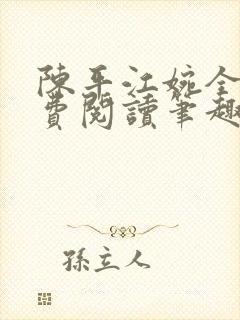 陳平江婉全
費閱讀筆趣
孫立人